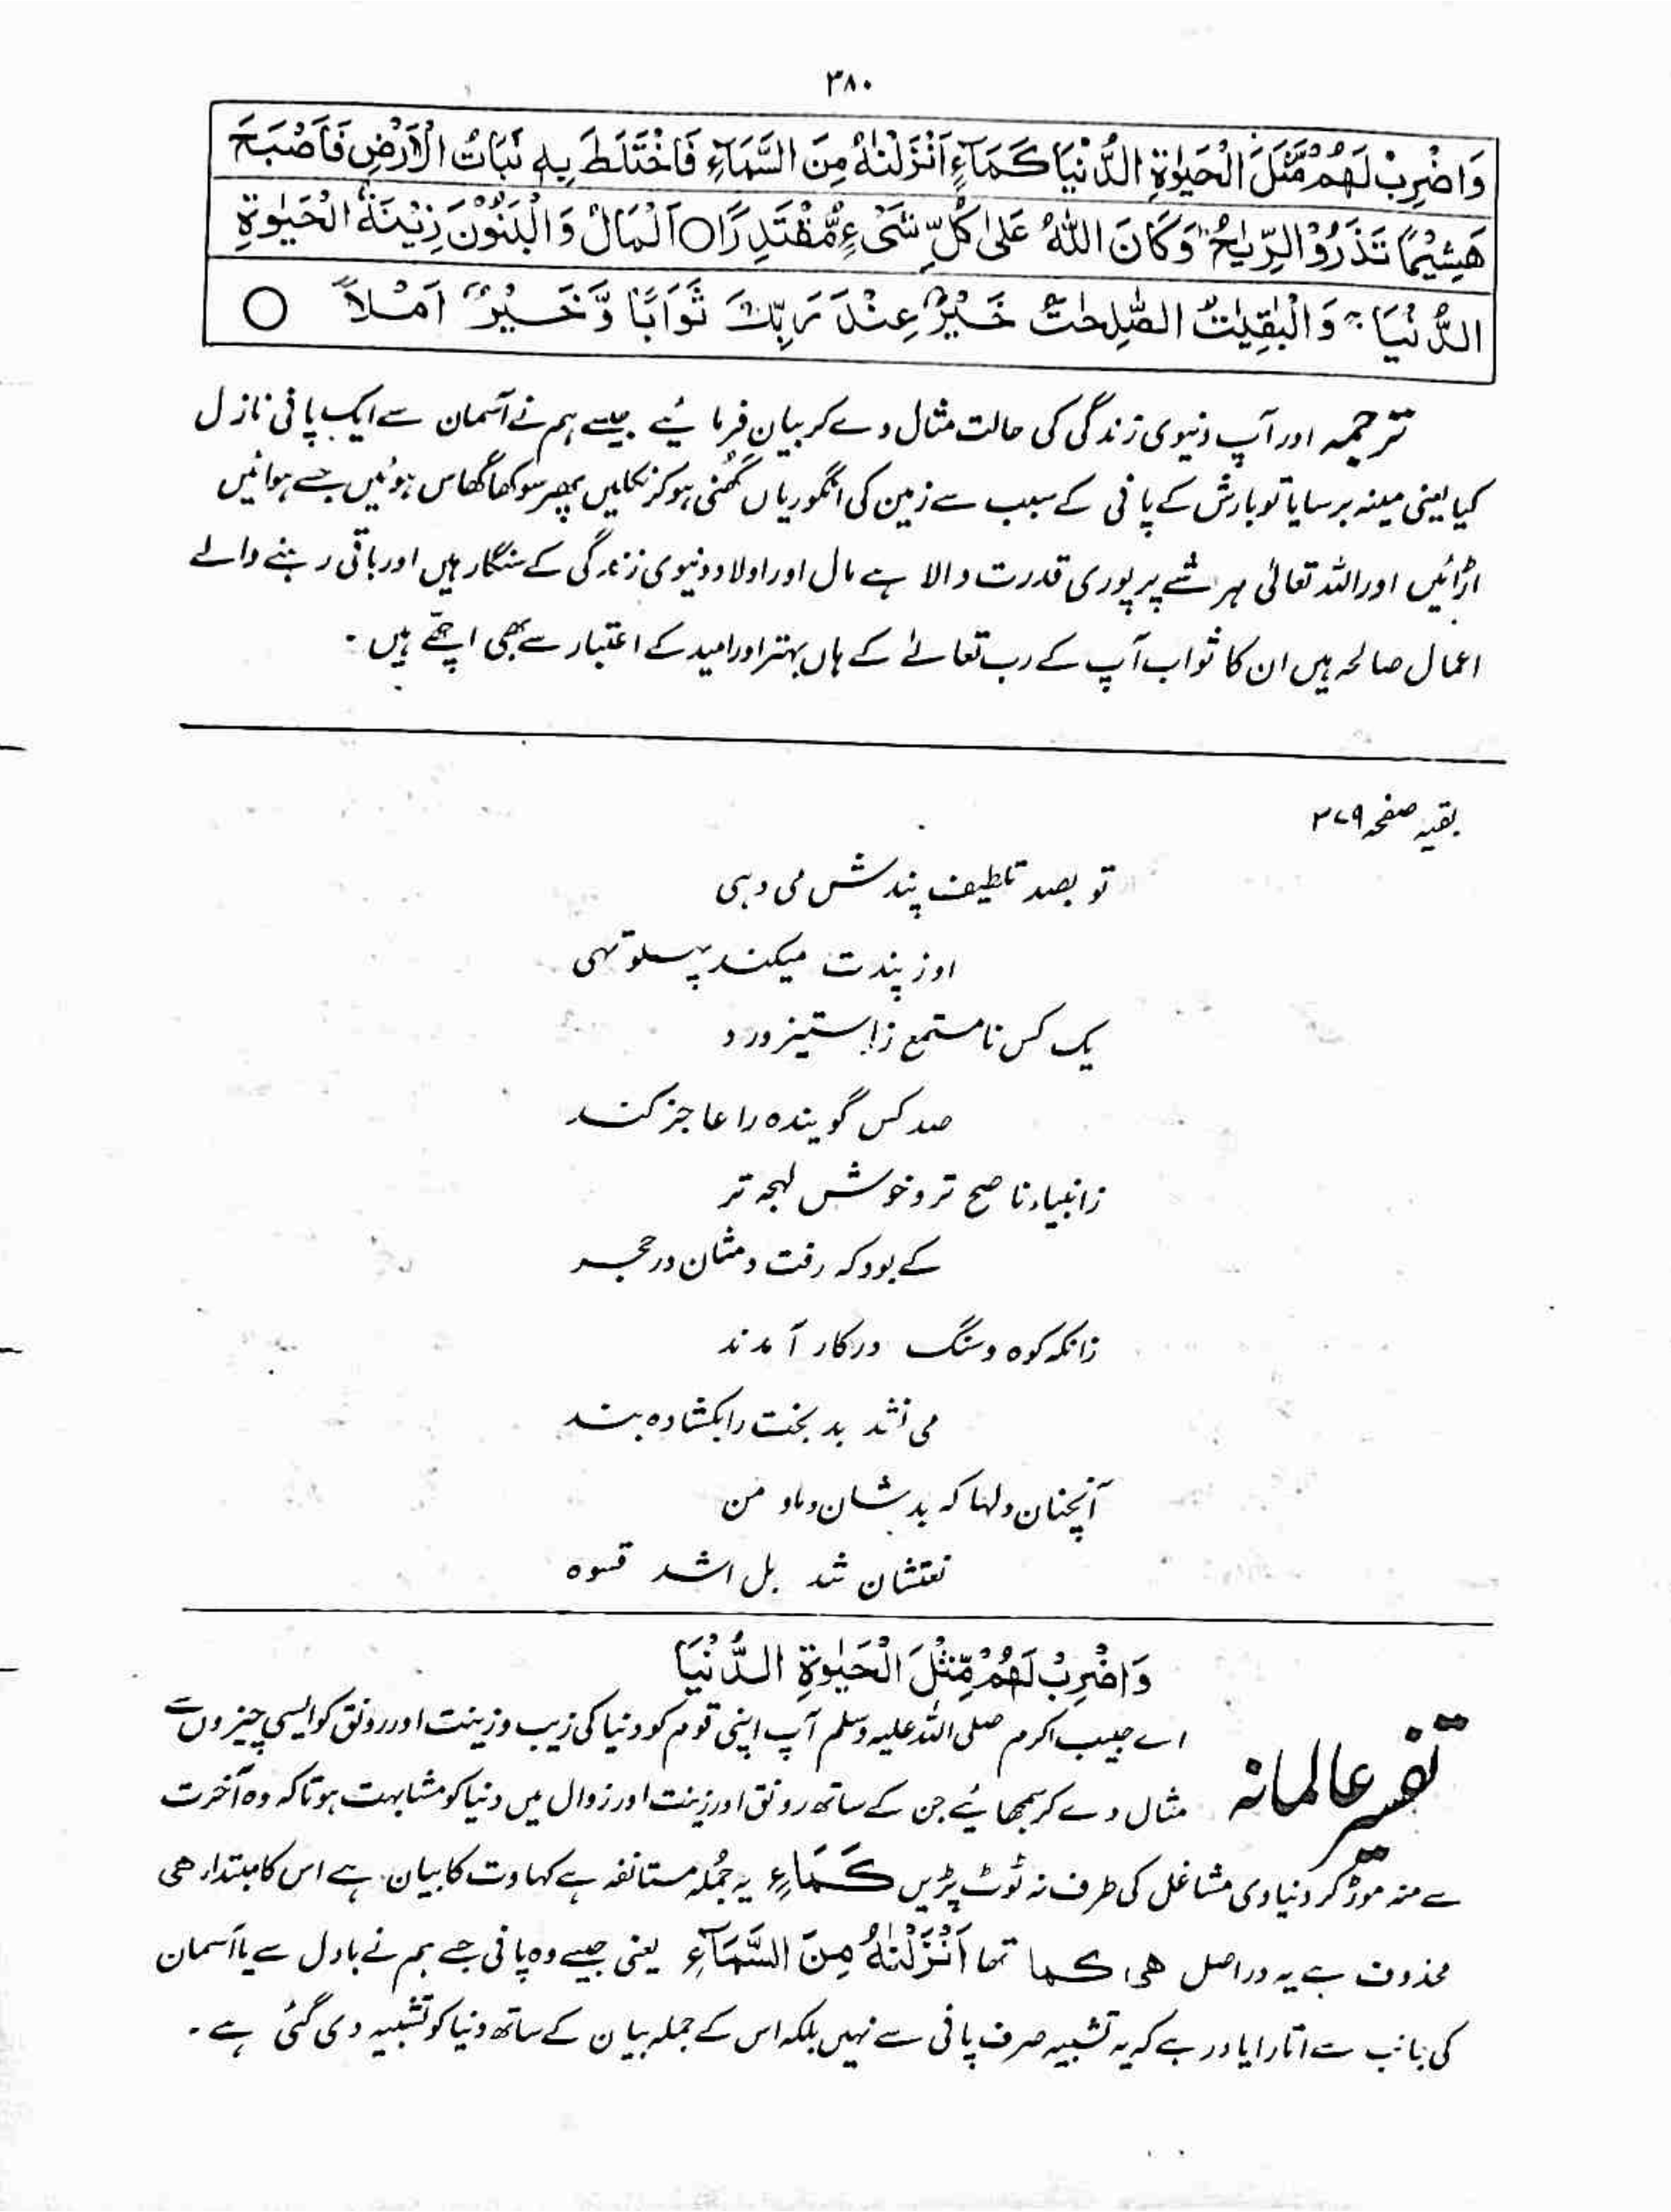 ٣٨٠
وَاضْرِبْ لَهُمْ مَّثَلَ الْحَيٰوةِ الدُّنْيَا كَمَآءٍ اَنْزَلْنٰهُ مِنَ السَّمَآءِ فَاخْتَلَطَ بِهٖ نَبَاتُ الْاَرْضِ فَاَصْبَحَ
هَشِيْمًا تَذْرُوْهُ الرِّيٰحُ ؕ وَكَانَ اللّٰهُ عَلٰى كُلِّ شَىْءٍ مُّقْتَدِرًا ○ اَلْمَالُ وَالْبَنُوْنَ زِيْنَةُ الْحَيٰوةِ
الدُّنْيَا ۚ وَالْبٰقِيٰتُ الصّٰلِحٰتُ خَيْرٌ عِنْدَ رَبِّكَ ثَوَابًا وَّخَيْرٌ اَمَلًا ○
ترجمہ اور آپ دنیوی زندگی کی حالت مثال دے کر بیان فرمائیے جیسے ہم نے آسمان سے ایک پانی نازل
کیا یعنی مینہ برسایا تو بارش کے پانی کے سبب سے زمین کی انگوریاں گھنی ہو کر نکلیں پھر سوکھا گھاس ہوئیں جسے ہوائیں
اڑائیں اور اللہ تعالیٰ ہر شے پر پوری قدرت والا ہے مال اور اولاد دنیوی زندگی کے سنگار ہیں اور باقی رہنے والے
اعمال صالحہ ہیں ان کا ثواب آپ کے رب تعالےٰ کے ہاں بہتر اور امید کے اعتبار سے بھی اچھے ہیں ۔
بقیہ صفحہ ٣٧٩
تو بصد تلطیف پندش می دہی
اوز پندت میکند پہلو تہی
یک کس نامستمع زاستیز ورد
صد کس گوینده را عاجز کند
زانبیاء ناصح تر و خوش لہجہ تر
کے بود کہ رفت دمشان در حجر
زانکہ کوہ و سنگ درکار آمدند
می نشد بدبخت را بکشاده بند
آنچنان دلہا کہ بدشان وماو من
نعتشان شد بل اشد قسوه
وَاضْرِبْ لَهُمْ مَّثَلَ الْحَيٰوةِ الدُّنْيَا
تفسیر عالمانہ
اے حبیب اکرم صلی اللہ علیہ وسلم آپ اپنی قوم کو دنیا کی زیب و زینت اور رونق کو ایسی چیزوں سے
مثال دے کر سمجھائیے جن کے ساتھ رونق اور زینت اور زوال میں دنیا کو مشابہت ہو تاکہ وہ آخرت
سے منہ موڑ کر دنیاوی مشاغل کی طرف نہ ٹوٹ پڑیں كَمَآءٍ یہ جُملہ مستانفہ ہے کہاوت کا بیان ہے اس کا مبتداء ھی
محذوف ہے یہ دراصل ھی کما تھا اَنْزَلْنٰهُ مِنَ السَّمَآءِ یعنی جیسے وہ پانی جسے ہم نے بادل سے یا آسمان
کی جانب سے اتارا یا در ہے کہ یہ تشبیہ صرف پانی سے نہیں بلکہ اس کے جملہ بیان کے ساتھ دنیا کو تشبیہ دی گئی ہے ۔